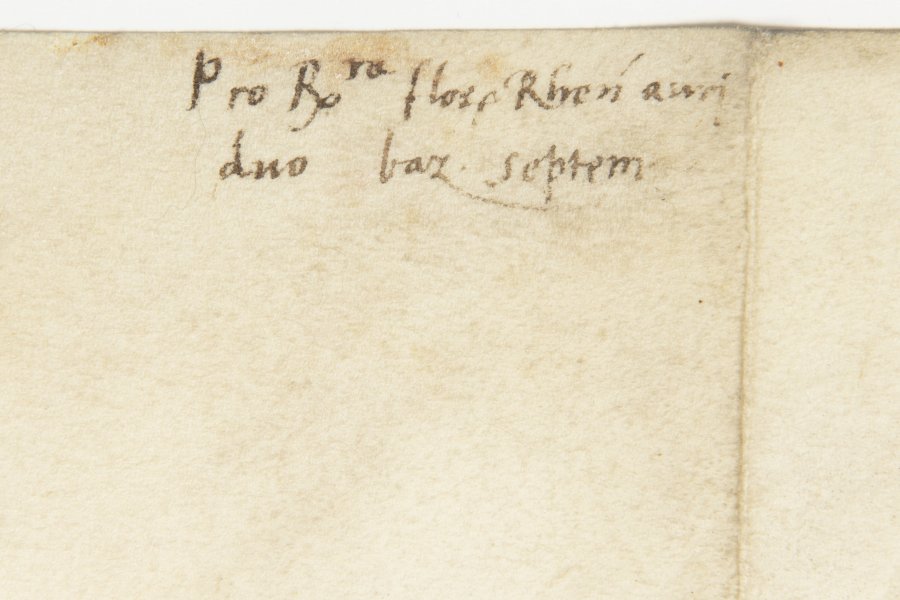 Pro Rx^ra flor Rhen auri
duo baz. septem